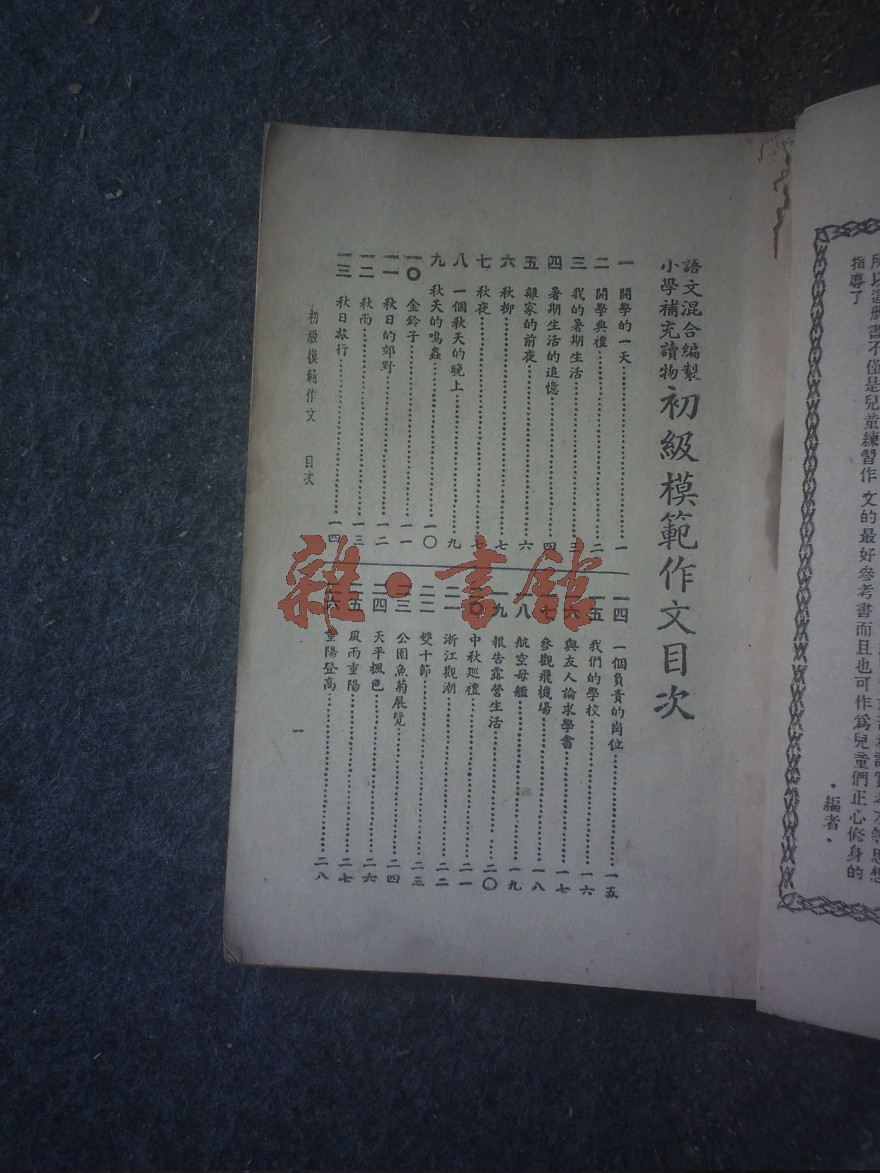 所以這册書不僅是兒童練習作文的最好參考書而且也可作為兒童們正心修身的
指導了
·編者·
語文混合編製
小學補充讀物
初級模範作文目次
一 開學的一天 一
二 開學典禮 二
三 我的暑期生活 三
四 暑期生活的追憶 四
五 離家的前夜 六
六 秋柳 七
七 秋夜
八 一個秋天的晚上 九
九 秋天的鳴蟲 一〇
一〇 金鈴子 一一
一一 秋日的郊野 一二
一二 秋雨 一三
一三 秋日旅行 一四
一四 一個負責的崗位 一五
一五 我們的學校 一六
一六 與友人論求學書 一七
一七 參觀飛機場 一八
一八 航空母艦 一九
一九 報告露營生活 二〇
二〇 中秋巡禮 二一
二一 浙江觀潮 二二
二二 雙十節 二三
二三 公園魚菊展覽 二四
二四 天平楓色 二六
二五 風雨重陽 二七
二六 重陽登高 二八
初級模範作文 目次
一
雜·書館